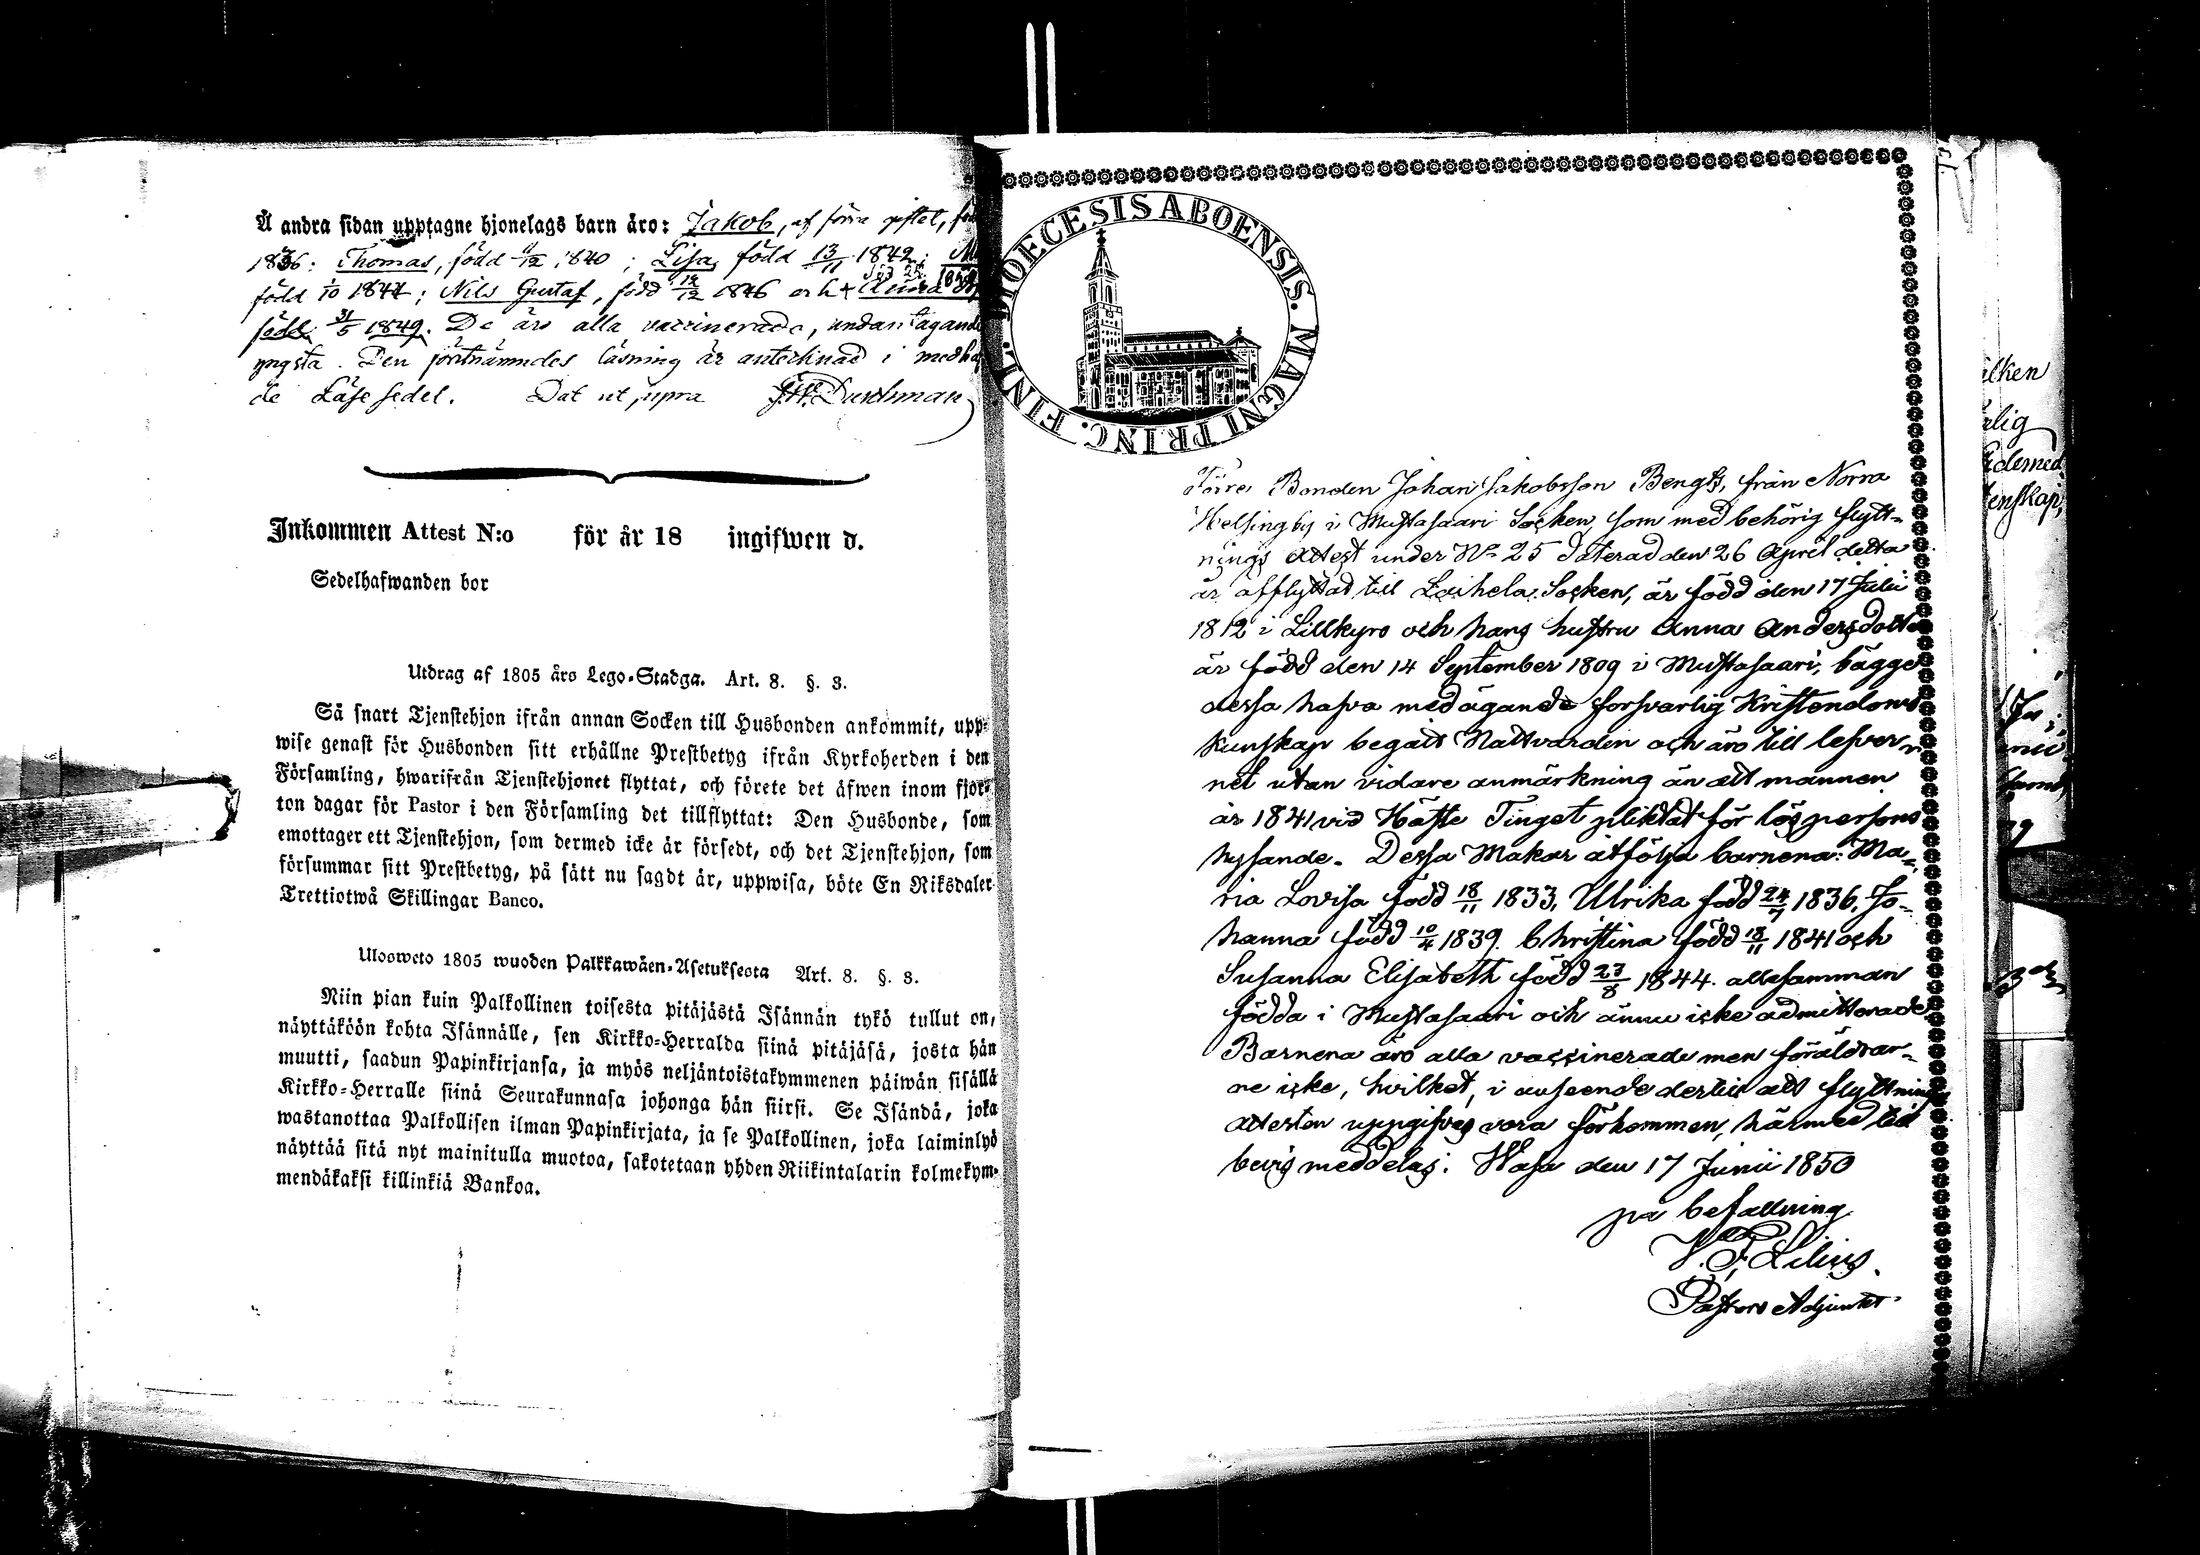 Å andra sidan upptagne hjonelags barn äro: Jakob, af förra giftet,
1836; Thomas, född 4/12 1840; Lisa, född 13/11 1842;
född 1/10 1844; Nils Gustaf, född 12/12 1846 och Anna
född 31/5 1849. De äro alla vaccinerade, undantagande
yngsta. Den förstnämndes läsning är antecknad i
de Läse sedel. Dat ut supra
Inkommen Attest N:o för år 18 ingifwen d.
Sedelhafwanden bor
Utdrag af 1805 års Lego-Stadga. Art. 8. §. 3.
Så snart Tjenstehjon ifrån annan Socken till Husbonden ankommit, upp-
wise genast för Husbonden sitt erhållne Prestbetyg ifrån Kyrkoherden i den
Församling, hwarifrån Tjenstehjonet flyttat, och förete det äfwen inom fjor-
ton dagar för Pastor i den Församling det tillflyttat: Den Husbonde, som
emottager ett Tjenstehjon, som dermed icke är försedt, och det Tjenstehjon, som
försummar sitt Prestbetyg, på sätt nu sagdt är, uppwisa, böte En Riksdaler
Trettiotwå Skillingar Banco.
Ulosweto 1805 wuoden Palkkawäen-Asetuksesta Art. 8. §. 3.
Niin pian kuin Palkollinen toisesta pitäjästä Isännän tykö tullut on,
näyttäköön kohta Isännälle, sen Kirkko-Herralda siinä pitäjäsä, josta hän
muutti, saadun Papinkirjansa, ja myös neljäntoistakymmenen päiwän sisällä
Kirkko-Herralle siinä Seurakunnasa johonga hän siirsi. Se Isändä, joka
wastanottaa Palkollisen ilman Papinkirjata, ja se Palkollinen, joka laiminlyö
näyttää sitä nyt mainitulla muotoa, sakotetaan yhden Riikintalarin kolmekym-
mendäkaksi killinkiä Bankoa.
DIOECESIS ABOENSIS. MAGNI PRINC. FINL.
Förre Bonden Johan Jakobsson Bengts, från Norra
Helsingby i Mustasaari Socken, som med behörig flytt-
nings Attest under No 25 daterad den 26 April detta
år afflyttat till Laihela Socken, är född den 17 Julii
1812 i Lillkyro och hans hustru Anna Andersdotter
är född den 14 September 1809 i Mustasaari, bägge
dessa hafva med ägande forsvarlig Kristendoms
kunskap begått Nattvarden och äro till lefver-
net utan vidare anmärkning än att mannen
år 1841 vid Höste Tinget pliktat för lös persons
hysande. Dessa Makar åtfölja barnena: Ma-
ria Lovisa född 18/11 1833, Ulrika född 24/7 1836, Jo-
hanna född 10/4 1839. Christina född 18/11 1841 och
Susanna Elisabeth född 27/8 1844. allesamman
födda i Mustasaari och ännu icke admitterade
Barnena äro alla vaccinerade men föräldrar-
ne icke, hvilket, i anseende dertill att flyttnings
attesten uppgifves vara förkommen, härmed till
bevis meddelas. Wasa den 17 Junii 1850
på befallning
Lilius.
Pastors Adjunkt